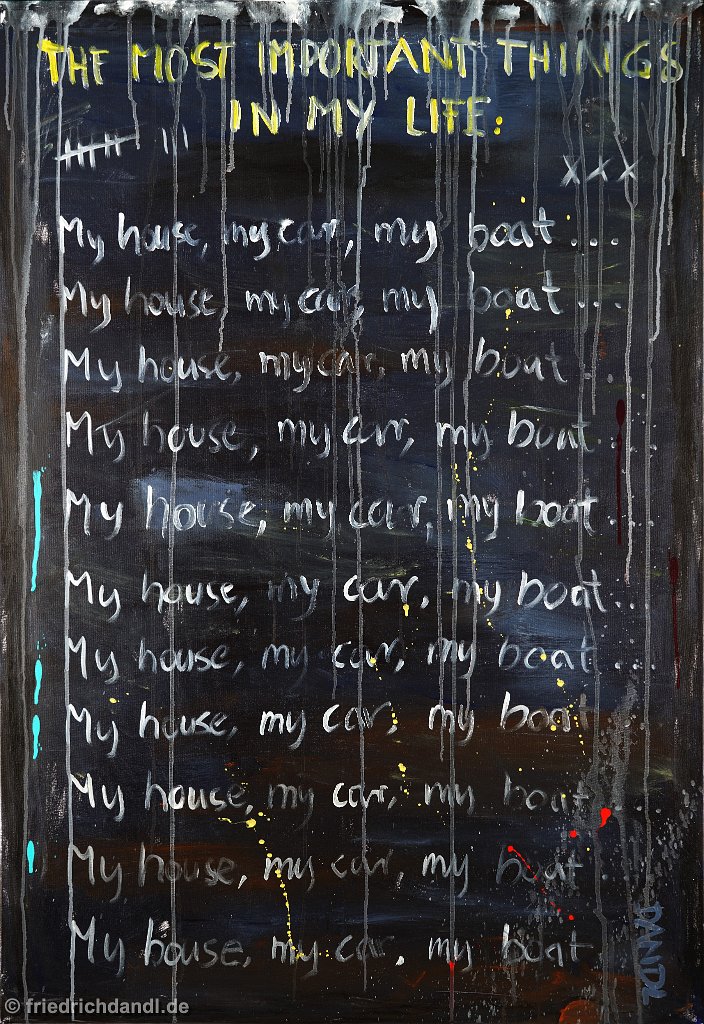 THE MOST IMPORTANT THINGS
IN MY LIFE:
xxx
My house, my car, my boat...
My house, my car, my boat...
My house, my car, my boat...
My house, my car, my boat...
My house, my car, my boat...
My house, my car, my boat...
My house, my car, my boat...
My house, my car, my boat...
My house, my car, my boat...
My house, my car, my boat..
My house, my car, my boat..
DANDL
© friedrichdandl.de